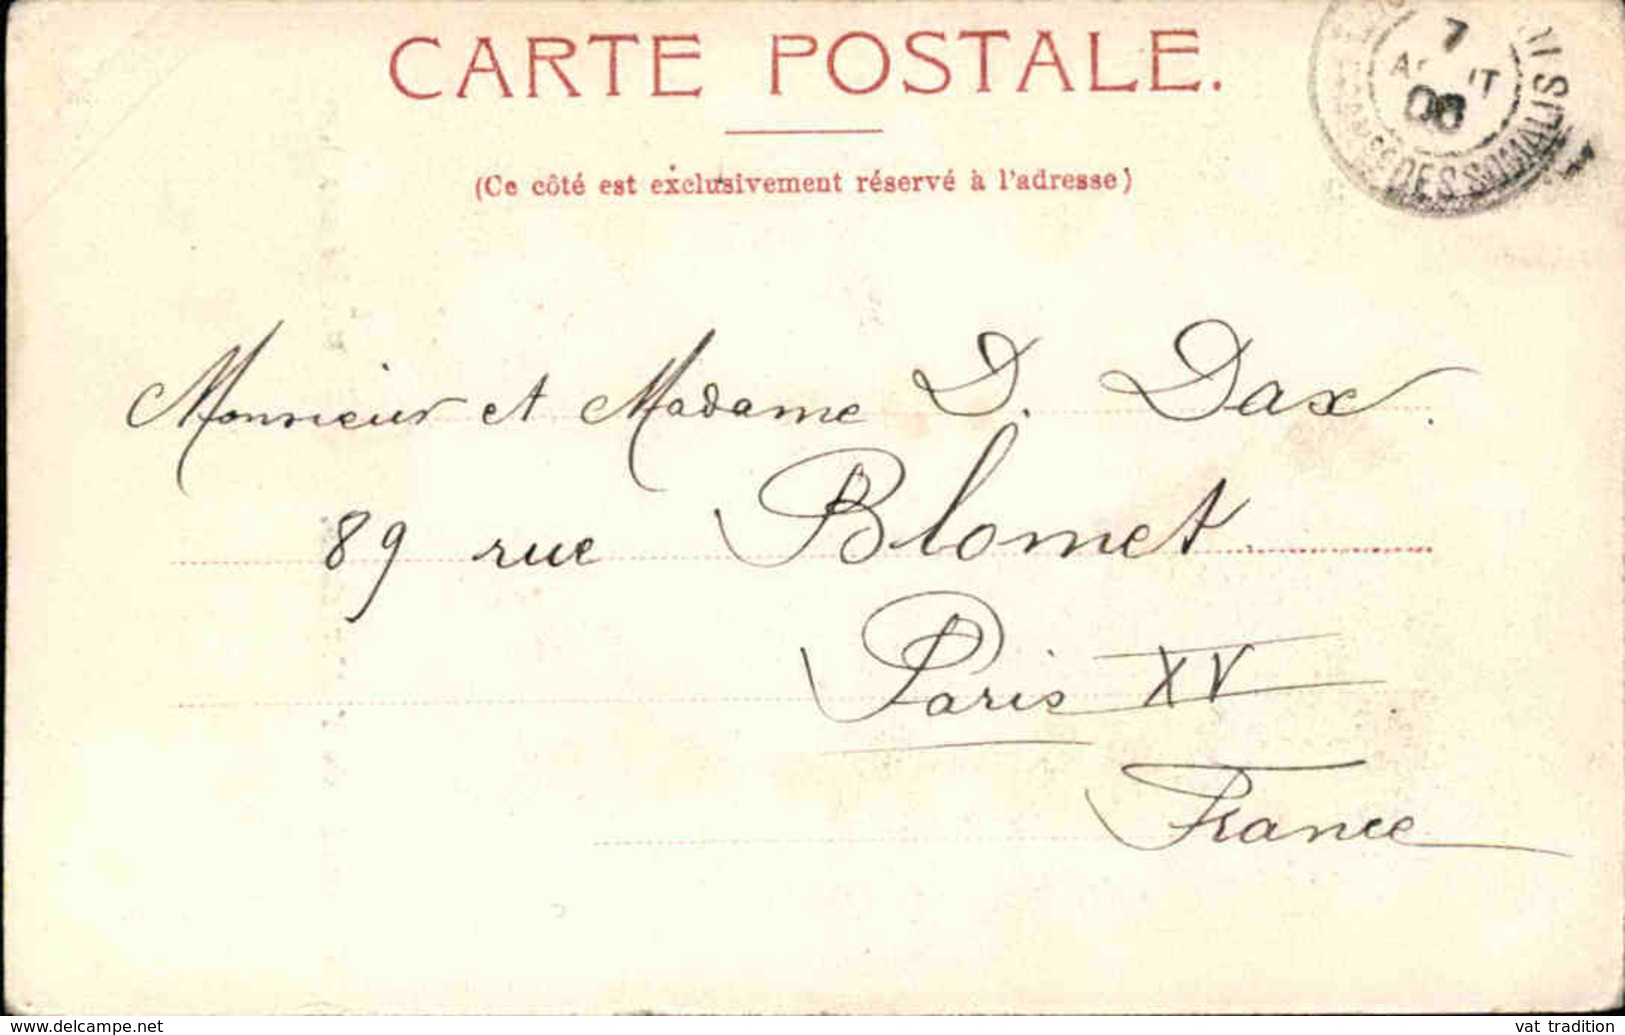 CARTE POSTALE.
(Ce côté est exclusivement réservé à l'adresse)
7
DES SOMALIS
Monsieur et Madame D. Dax.
89 rue Blomet
Paris XV
France
www.delcampe.net
vat_tradition